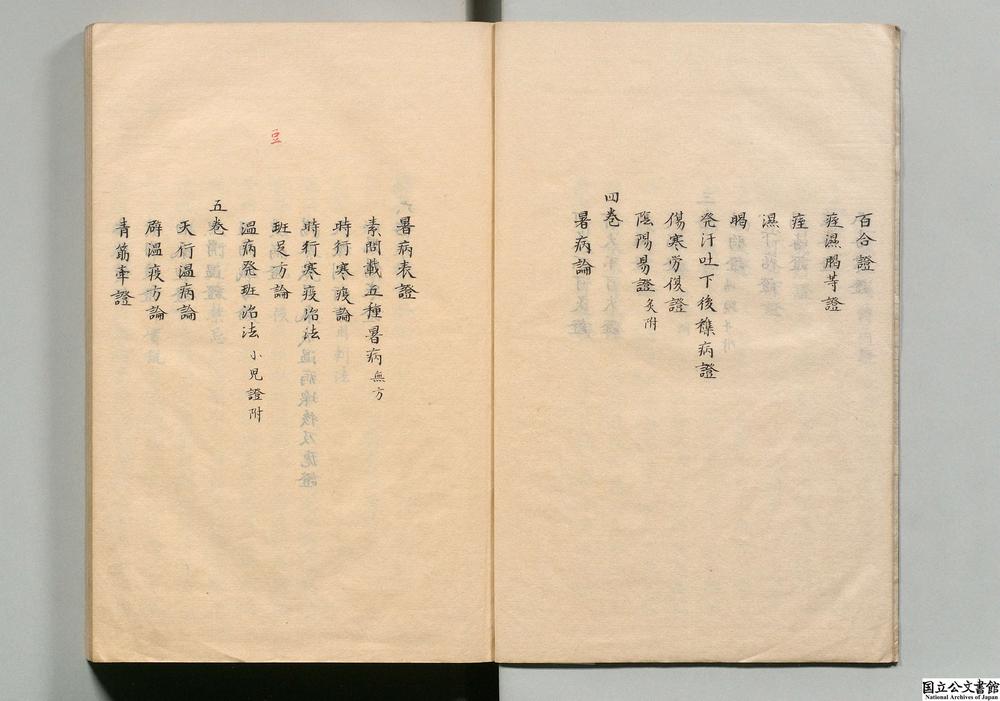 百合證
痓濕暍等證
痓
濕
暍
発汗吐下後雜病證
傷寒労復證
陰陽易證 灸附
四巻
暑病論
暑病表證
素問載五種暑病 無方
時行寒疫論
時行寒疫治法
豆
班疋方論
温病発班治法 小児證附
五巻
天行温病論
辟温疫方論
青筋牽證
国立公文書館
National Archives of Japan